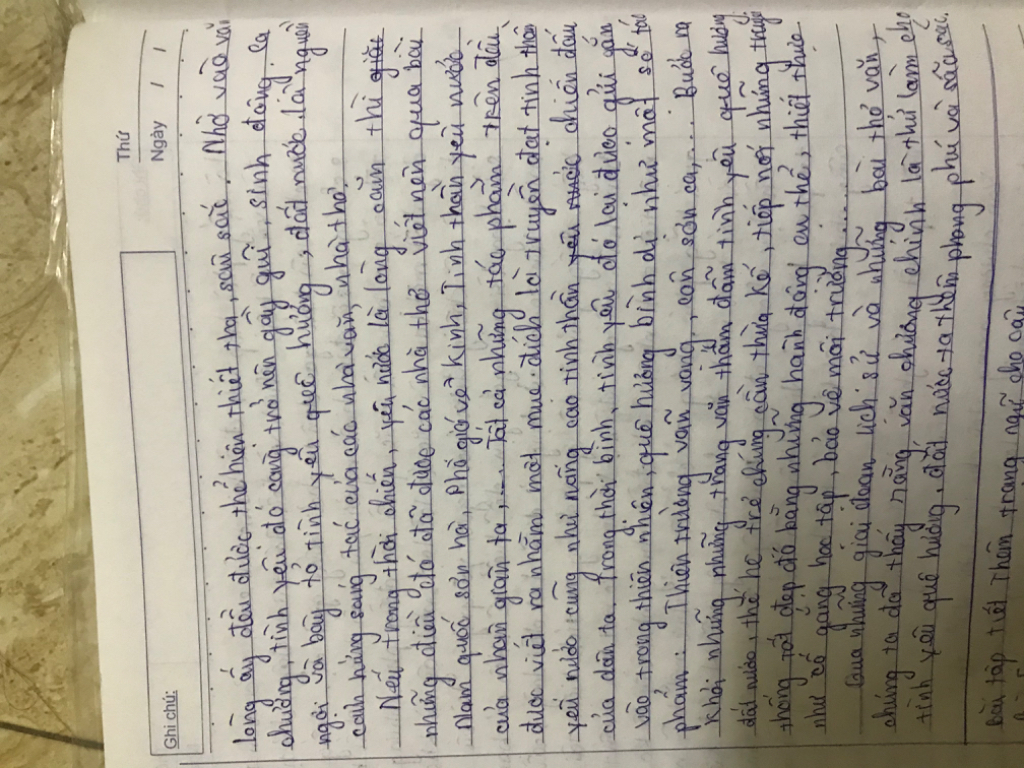 Thứ
Ngày / /
Ghi chú:
lòng ấy đều được thể hiện thiết tha, sâu sắc. Nhờ vào văn
chương, tình yêu đó càng trở nên gần gũi, sinh động. Ca
ngợi và bày tỏ tình yêu quê hương, đất nước là nguồn
cảnh hứng sáng tác của các nhà văn, nhà thơ.
Nếu trong thời chiến, yêu nước là lòng căm thì
những điều đó đã được các nhà thơ viết nên qua bài
Nam quốc sơn hà, Phò giá về kinh, Tinh thần yêu nước
của nhân dân ta,.... Tất cả những tác phẩm trên đều
được viết ra nhằm một mục đích là truyền đạt tinh thần
yêu nước cũng như nâng cao tinh thần chiến đấu
của dân ta. Trong thời bình, tình yêu đó lại được gửi gắm
vào trong thiên nhiên, quê hương bình dị như một số tác
phẩm: Thiên trường vãn vọng, côn sơn ca,.... Bước ra
khỏi những những trang văn thắm đẫm tình yêu quê hương,
đất nước, thế hệ trẻ chúng cần thừa kế, tiếp nối những truyền
thống tốt đẹp đó bằng những hành động cụ thể, thiết thực
như cố gắng học tập, bảo vệ môi trường....
Qua những giai đoạn lịch sử và những bài thơ văn,
chúng ta đã thấy rằng văn chương chính là thứ làm cho
tình yêu quê hương, đất nước ta thêm phong phú và sâu sắc.
bài tập tiết Thêm trạng ngữ cho câu